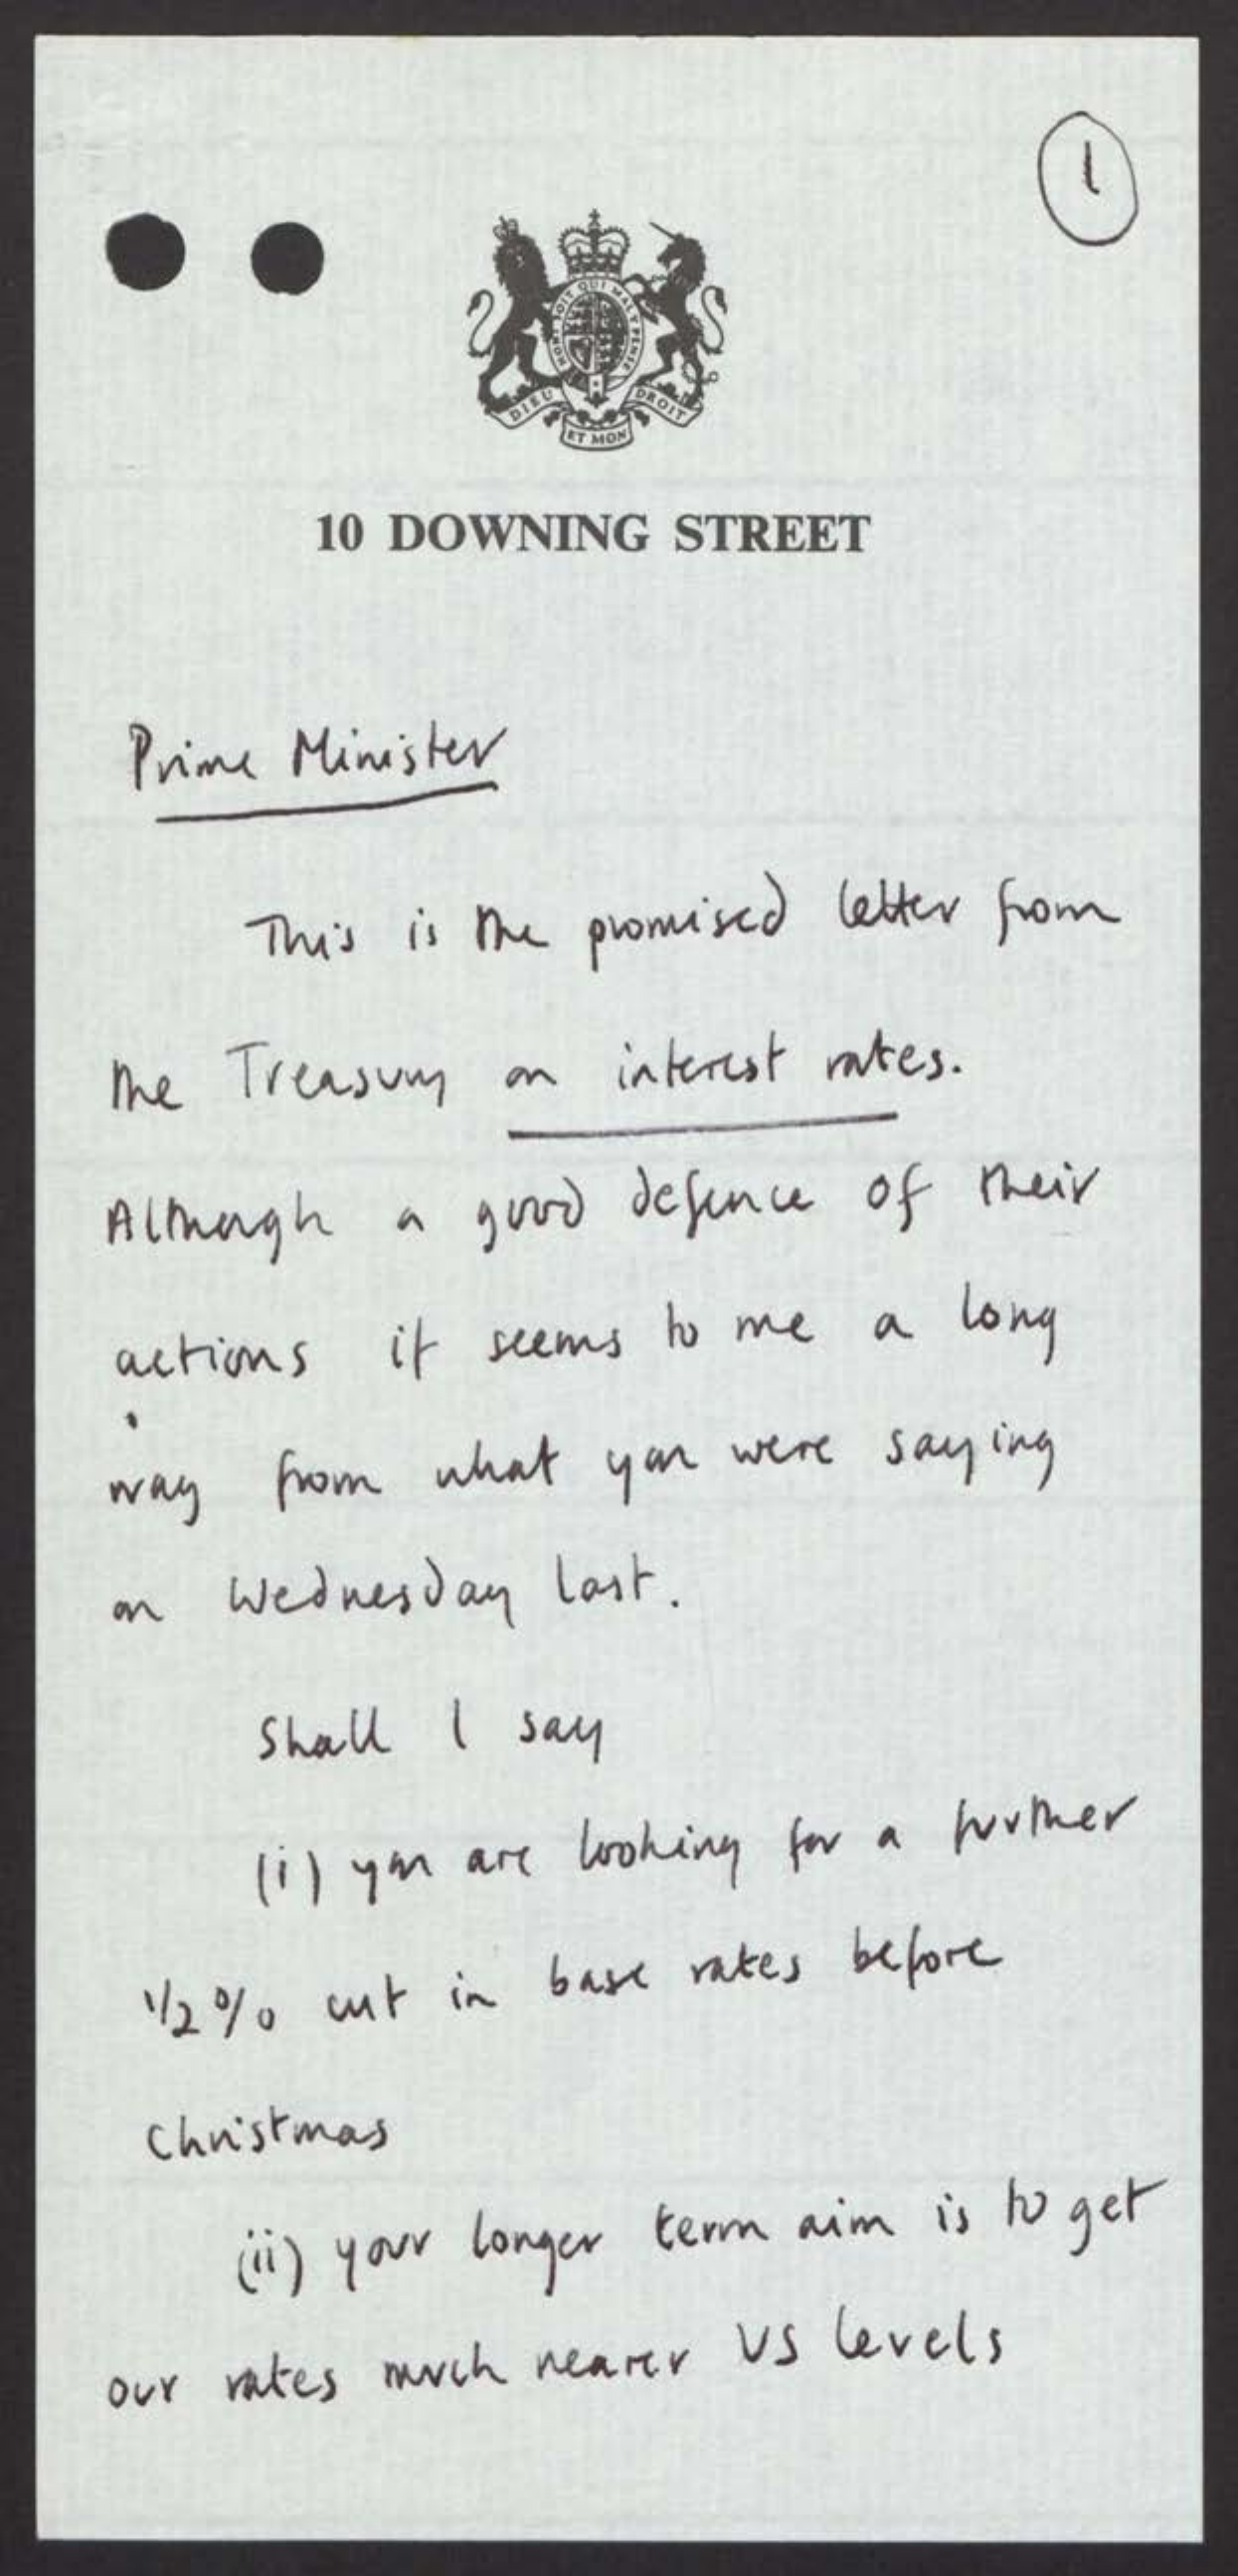 1
HONI SOIT QUI MAL Y PENSE
DIEU ET MON DROIT
10 DOWNING STREET
Prime Minister
This is the promised letter from
the Treasury on interest rates.
Although a good defence of their
actions it seems to me a long
way from what you were saying
on Wednesday last.
Shall I say
(i) you are looking for a further
1/2% cut in base rates before
Christmas
(ii) your longer term aim is to get
our rates much nearer US levels